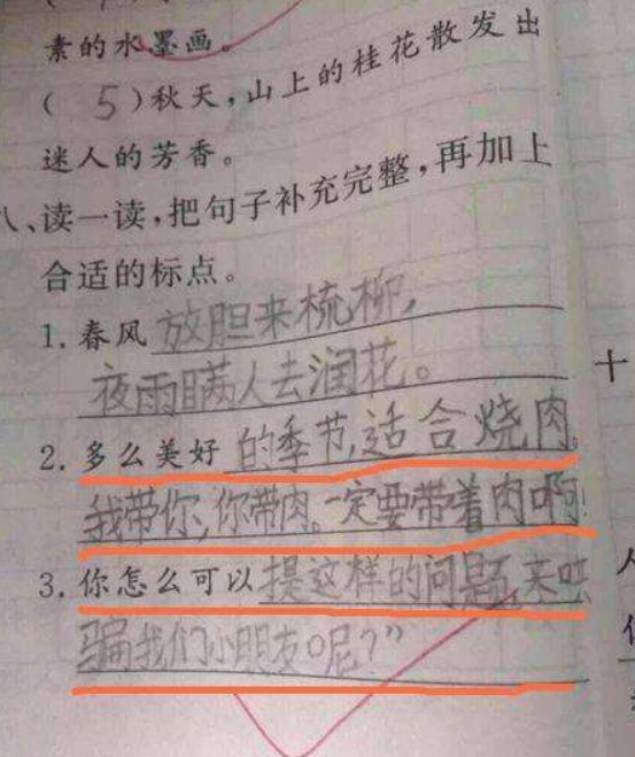 素的水墨画。
( 5 )秋天，山上的桂花散发出
迷人的芳香。
八、读一读，把句子补充完整，再加上
合适的标点。
1. 春风放胆来梳柳，
夜雨瞒人去润花。
2. 多么美好的季节，适合烧肉。
我带你，你带肉。一定要带着肉啊！
3. 你怎么可以提这样的问题来哄
骗我们小朋友呢？”
十